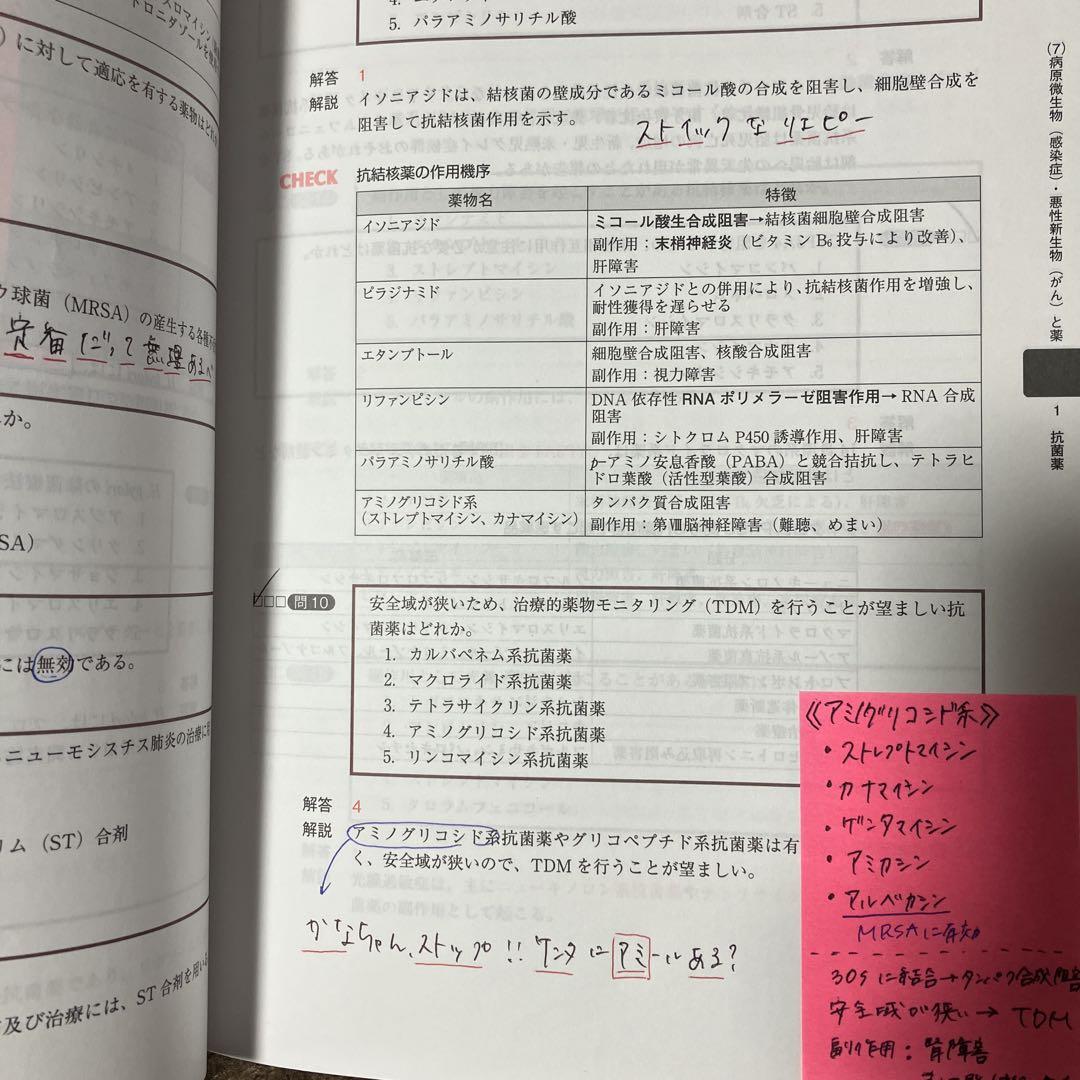 スロマイシン
トロニダゾールを
）に対して適応を有する薬物はどれ
ウ球菌（MRSA）の産生する各種
定番だって無理あるべ
か。
SA）
には無効である。
ニューモシスチス肺炎の治療に
リム（ST）合剤
及び治療には、ST合剤を用い
5. パラアミノサリチル酸
解答 1
解説 イソニアジドは、結核菌の壁成分であるミコール酸の合成を阻害し、細胞壁合成を
阻害して抗結核菌作用を示す。
ストイックなリエピー
CHECK 抗結核薬の作用機序
薬物名 特徴
イソニアジド ミコール酸生合成阻害→結核菌細胞壁合成阻害
副作用：末梢神経炎（ビタミンB₆投与により改善）、
肝障害
ピラジナミド イソニアジドとの併用により、抗結核菌作用を増強し、
耐性獲得を遅らせる
副作用：肝障害
エタンブトール 細胞壁合成阻害、核酸合成阻害
副作用：視力障害
リファンピシン DNA依存性RNAポリメラーゼ阻害作用→RNA合成
阻害
副作用：シトクロムP450誘導作用、肝障害
パラアミノサリチル酸 p-アミノ安息香酸（PABA）と競合拮抗し、テトラヒ
ドロ葉酸（活性型葉酸）合成阻害
アミノグリコシド系 タンパク質合成阻害
（ストレプトマイシン、カナマイシン） 副作用：第Ⅷ脳神経障害（難聴、めまい）
問10 安全域が狭いため、治療的薬物モニタリング（TDM）を行うことが望ましい抗
菌薬はどれか。
1. カルバペネム系抗菌薬
2. マクロライド系抗菌薬
3. テトラサイクリン系抗菌薬
4. アミノグリコシド系抗菌薬
5. リンコマイシン系抗菌薬
解答 4
解説 アミノグリコシド系抗菌薬やグリコペプチド系抗菌薬は有
く、安全域が狭いので、TDMを行うことが望ましい。
かなちゃん、ストップ!! ゲンタにアミールある?
《アミノグリコシド系》
・ストレプトマイシン
・カナマイシン
・ゲンタマイシン
・アミカシン
・アルベカシン
MRSAに有効
30Sに結合→タンパク合成阻害
安全域が狭い→TDM
副作用：腎障害
(7) 病原微生物（感染症）・悪性新生物（がん）と薬
1 抗菌薬